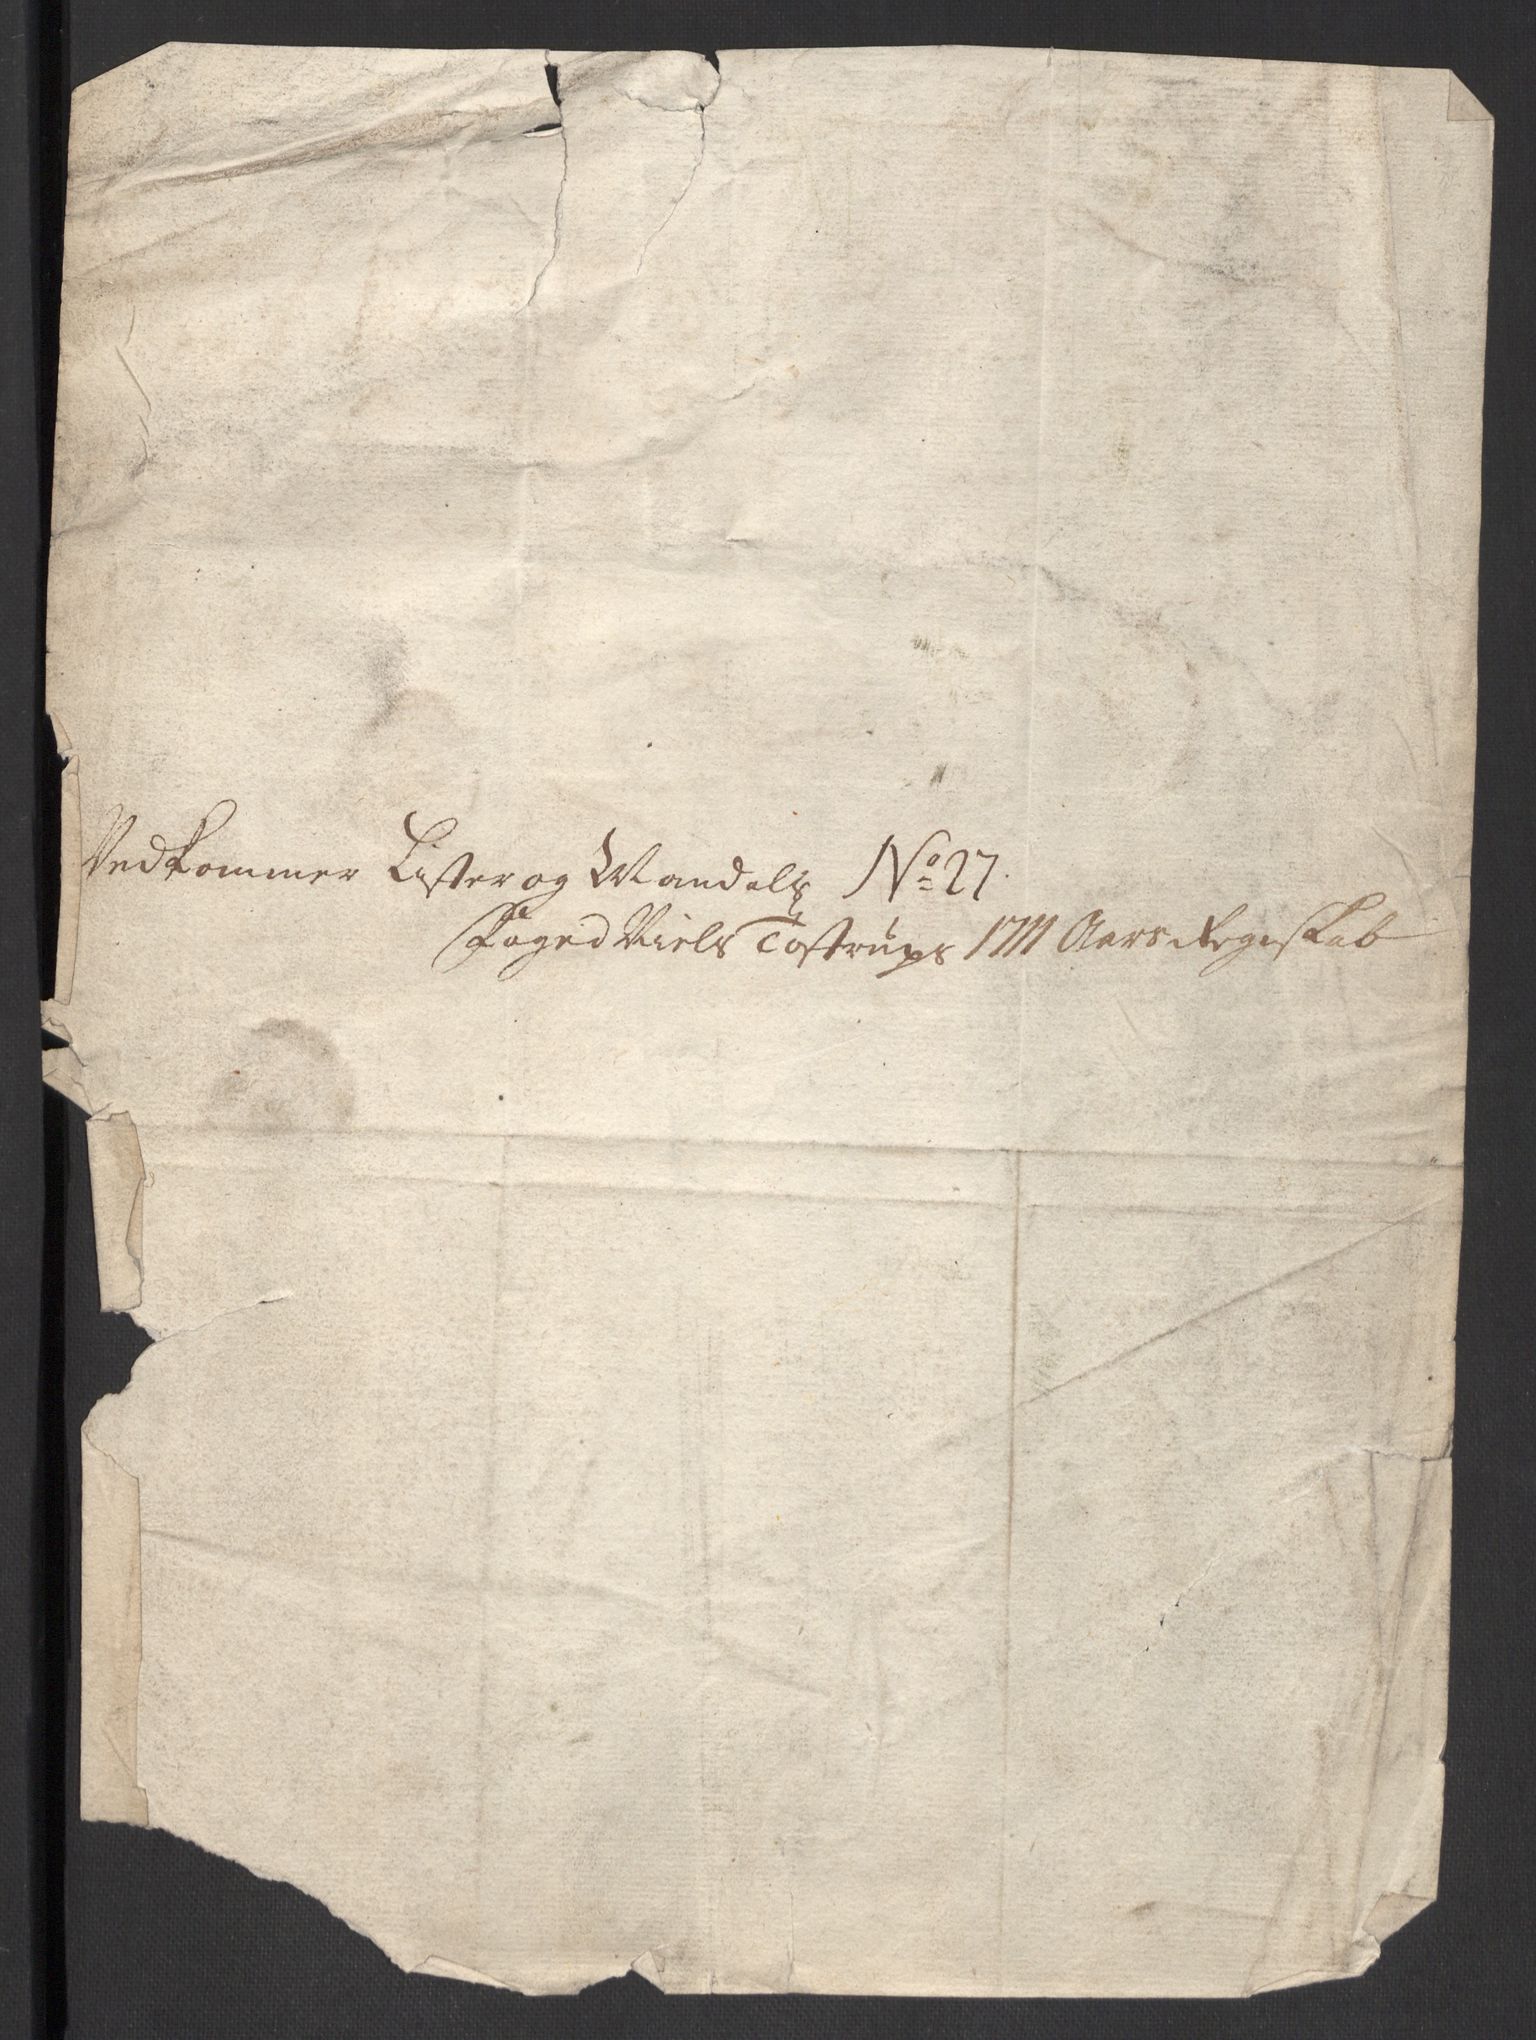 Vedkommer Lister og Mandals No 27.
Foged Niels Tostrups 1711 Aars Regnskab